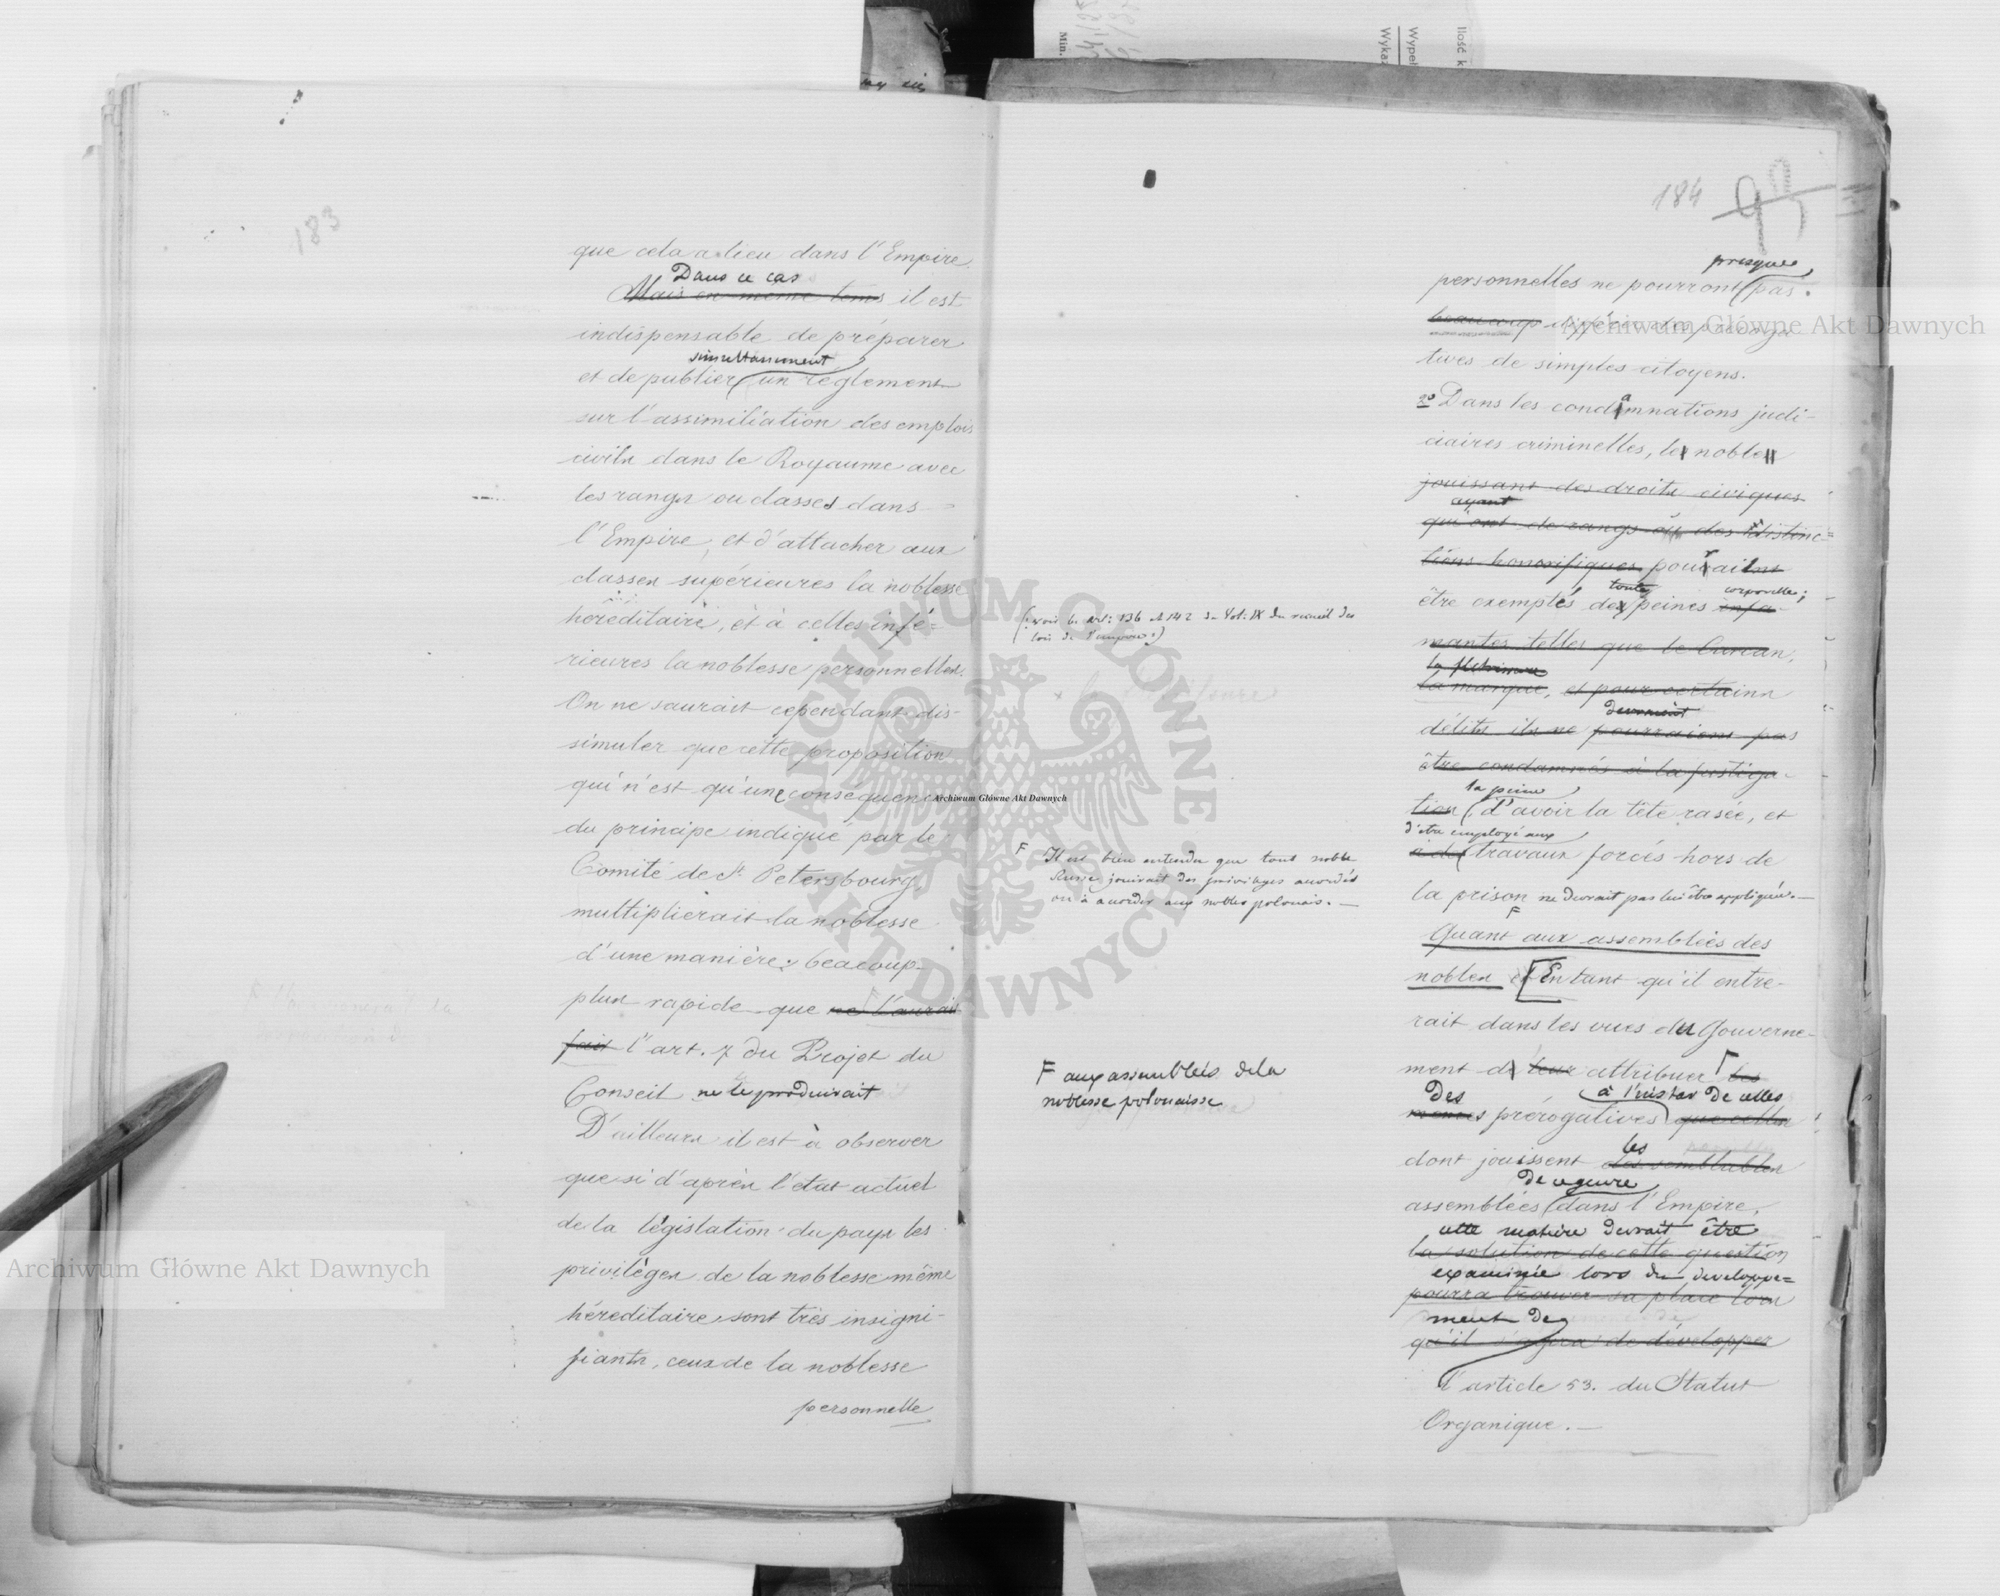 183
que cela a lieu dans l'Empire.
Dans ce cas
Mais en même tems il est
indispensable de préparer
simultanément
et de publier un réglement
sur l'assimiliation des emplois
civils dans le Royaume avec
les rangs ou classes dans
l'Empire, et d'attacher aux
classes supérieures la noblesse
héréditaire, et à celles infé=
rieures la noblesse personnelles.
On ne saurait cependant dis-
simuler que cette proposition
qui n'est qu'une conséquence
du principe indiqué par le
Comité de St Petersbourg,
multiplierait la noblesse
d'une manière beacoup
plus rapide que ne l'aurait
fait l'art. 7 du Projet du
Conseil ne le produirait
D'ailleurs il est à observer
que si d'après l'état actuel
de la législation du pays les
privilèges de la noblesse même
héreditaire sont très insigni-
fiants, ceux de la noblesse
personnelle
184
95
presque
personnelles ne pourront pas
beaucoup différer des préroga
tives de simples citoyens.
2o Dans les condamnations judi-
ciaires criminelles, le noble
jouissant des droits civiques
ayant
qui ont de rangs ou des distinc=
tions honorifiques pourrait
toutes corporelles;
être exemptés de peines infa-
mantes telles que le Carcan,
la flétrissure
la marque, et pour certains
devraient
délits ils ne pourraient pas
être condamnés à la fustiga-
la peine
tion d'avoir la tête rasée, et
d'être employé aux
à des travaux forcés hors de
la prison ne devrait pas lui être appliquée.—
F
Quant aux assemblées des
nobles et En tant qu'il entre-
rait dans les vues du Gouverne-
ment de leur attribuer F les
des à l'instar de celles
mêmes prérogatives que celles
dont jouissent les des semblables
de ce genre
assemblées dans l'Empire,
cette matière devrait être
la solution de cette question
examinée lors du developpe=
pourra trouver sa place lors
ment de
qu'il s'agira de développer
l'article 53. du Statut
Organique.—
(: voir les art: 136 et 142 du Vol: IX du recueil des
lois de l'empire :)
F Il est bien entendu que tout noble
Russe jouirait des privileges accordés
ou à accorder aux nobles polonais.—
F aux assemblées de la
noblesse polonaisse
Archiwum Główne Akt Dawnych
Archiwum Główne Akt Dawnych
Archiwum Główne Akt Dawnych
ARCHIWUM GŁÓWNE AKT DAWNYCH
Min.
Wykaz
Wypeł
Ilość k